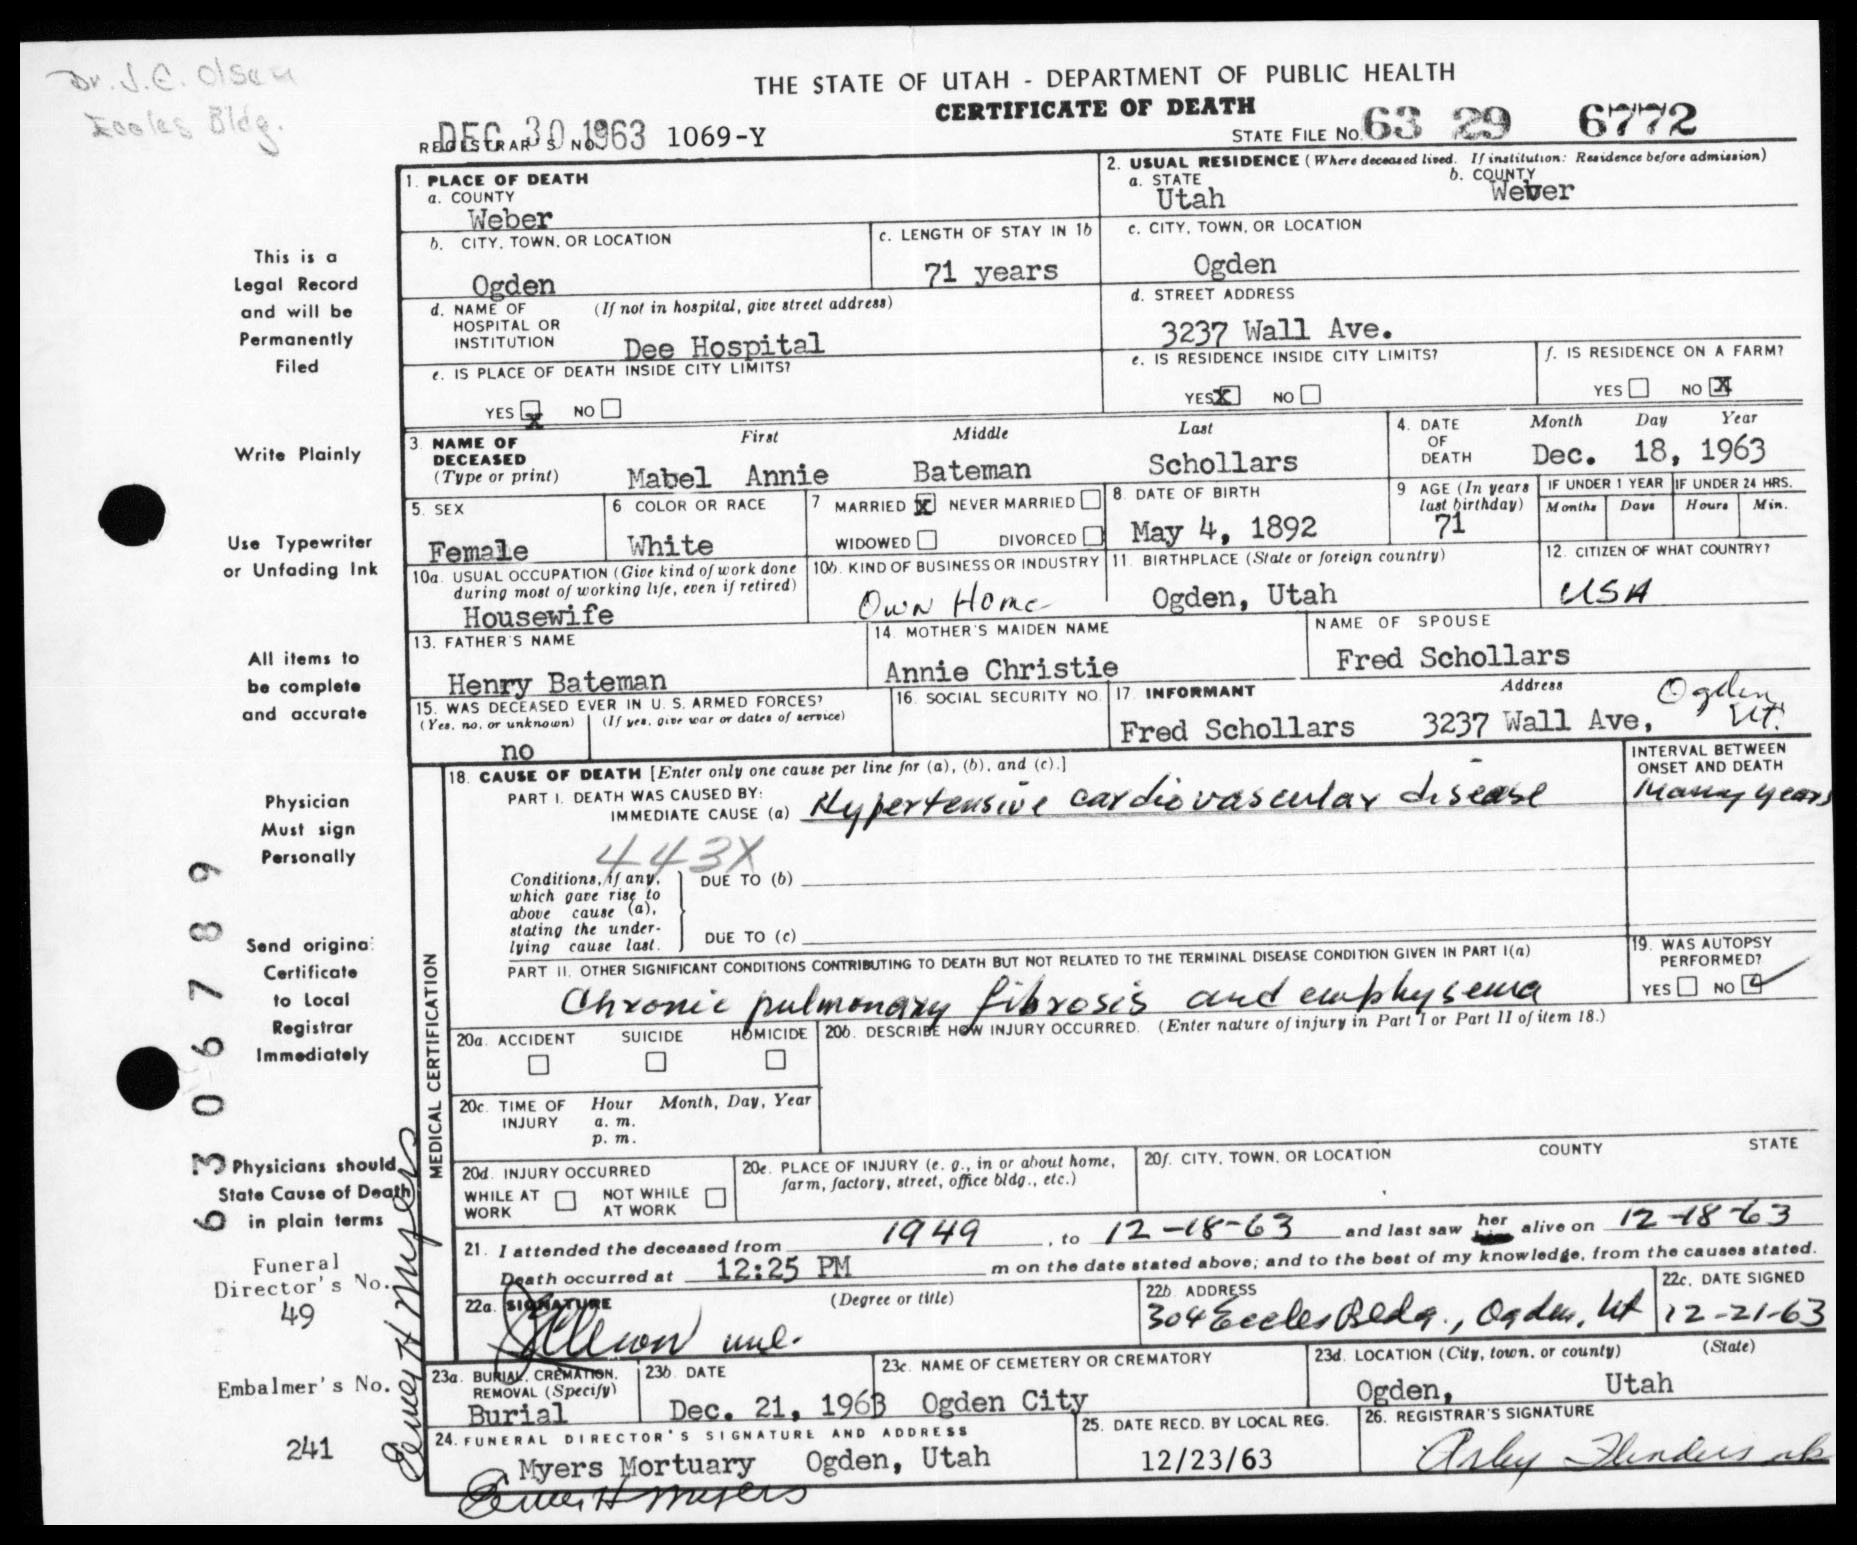 Dr. J. C. Olsen
Eccles Bldg.
THE STATE OF UTAH - DEPARTMENT OF PUBLIC HEALTH
CERTIFICATE OF DEATH
DEC 30 1963
REGISTRAR'S NO. 1069-Y
STATE FILE NO. 63 29 6772
This is a
Legal Record
and will be
Permanently
Filed
Write Plainly
Use Typewriter
or Unfading Ink
All items to
be complete
and accurate
Physician
Must sign
Personally
Send original
Certificate
to Local
Registrar
Immediately
Physicians should
State Cause of Death
in plain terms
Funeral
Director's No.
49
Embalmer's No.
241
63 06789
1. PLACE OF DEATH
a. COUNTY
Weber
b. CITY, TOWN, OR LOCATION
Ogden
c. LENGTH OF STAY IN 1b
71 years
d. NAME OF HOSPITAL OR INSTITUTION (If not in hospital, give street address)
Dee Hospital
e. IS PLACE OF DEATH INSIDE CITY LIMITS?
YES X NO
2. USUAL RESIDENCE (Where deceased lived. If institution: Residence before admission)
a. STATE
Utah
b. COUNTY
Weber
c. CITY, TOWN, OR LOCATION
Ogden
d. STREET ADDRESS
3237 Wall Ave.
e. IS RESIDENCE INSIDE CITY LIMITS?
YES X NO
f. IS RESIDENCE ON A FARM?
YES NO X
3. NAME OF DECEASED (Type or print)
First Middle Last
Mabel Annie Bateman Schollars
4. DATE OF DEATH
Month Day Year
Dec. 18, 1963
5. SEX
Female
6 COLOR OR RACE
White
7 MARRIED X NEVER MARRIED
WIDOWED DIVORCED
8. DATE OF BIRTH
May 4, 1892
9 AGE (In years last birthday)
71
IF UNDER 1 YEAR
Months Days
IF UNDER 24 HRS.
Hours Min.
10a. USUAL OCCUPATION (Give kind of work done during most of working life, even if retired)
Housewife
10b. KIND OF BUSINESS OR INDUSTRY
Own Home
11. BIRTHPLACE (State or foreign country)
Ogden, Utah
12. CITIZEN OF WHAT COUNTRY?
USA
13. FATHER'S NAME
Henry Bateman
14. MOTHER'S MAIDEN NAME
Annie Christie
NAME OF SPOUSE
Fred Schollars
15. WAS DECEASED EVER IN U. S. ARMED FORCES?
(Yes, no, or unknown) (If yes, give war or dates of service)
no
16. SOCIAL SECURITY NO.
17. INFORMANT Address
Fred Schollars 3237 Wall Ave, Ogden, Ut.
MEDICAL CERTIFICATION
18. CAUSE OF DEATH [Enter only one cause per line for (a), (b), and (c).]
PART I. DEATH WAS CAUSED BY:
IMMEDIATE CAUSE (a) Hypertensive cardiovascular disease
INTERVAL BETWEEN ONSET AND DEATH
Many years
443X
Conditions, if any, which gave rise to above cause (a), stating the underlying cause last.
DUE TO (b)
DUE TO (c)
PART II. OTHER SIGNIFICANT CONDITIONS CONTRIBUTING TO DEATH BUT NOT RELATED TO THE TERMINAL DISEASE CONDITION GIVEN IN PART I(a)
Chronic pulmonary fibrosis and emphysema
19. WAS AUTOPSY PERFORMED?
YES NO
20a. ACCIDENT SUICIDE HOMICIDE
20b. DESCRIBE HOW INJURY OCCURRED. (Enter nature of injury in Part I or Part II of item 18.)
20c. TIME OF INJURY
Hour Month, Day, Year
a. m.
p. m.
20d. INJURY OCCURRED
WHILE AT WORK NOT WHILE AT WORK
20e. PLACE OF INJURY (e. g., in or about home, farm, factory, street, office bldg., etc.)
20f. CITY, TOWN, OR LOCATION COUNTY STATE
21. I attended the deceased from 1949, to 12-18-63 and last saw her alive on 12-18-63
Death occurred at 12:25 PM m on the date stated above; and to the best of my knowledge, from the causes stated.
22a. SIGNATURE (Degree or title)
22b. ADDRESS
304 Eccles Bldg., Ogden, Ut
22c. DATE SIGNED
12-21-63
23a. BURIAL, CREMATION, REMOVAL (Specify)
Burial
23b. DATE
Dec. 21, 1963
23c. NAME OF CEMETERY OR CREMATORY
Ogden City
23d. LOCATION (City, town, or county) (State)
Ogden, Utah
24. FUNERAL DIRECTOR'S SIGNATURE AND ADDRESS
Myers Mortuary Ogden, Utah
25. DATE RECD. BY LOCAL REG.
12/23/63
26. REGISTRAR'S SIGNATURE